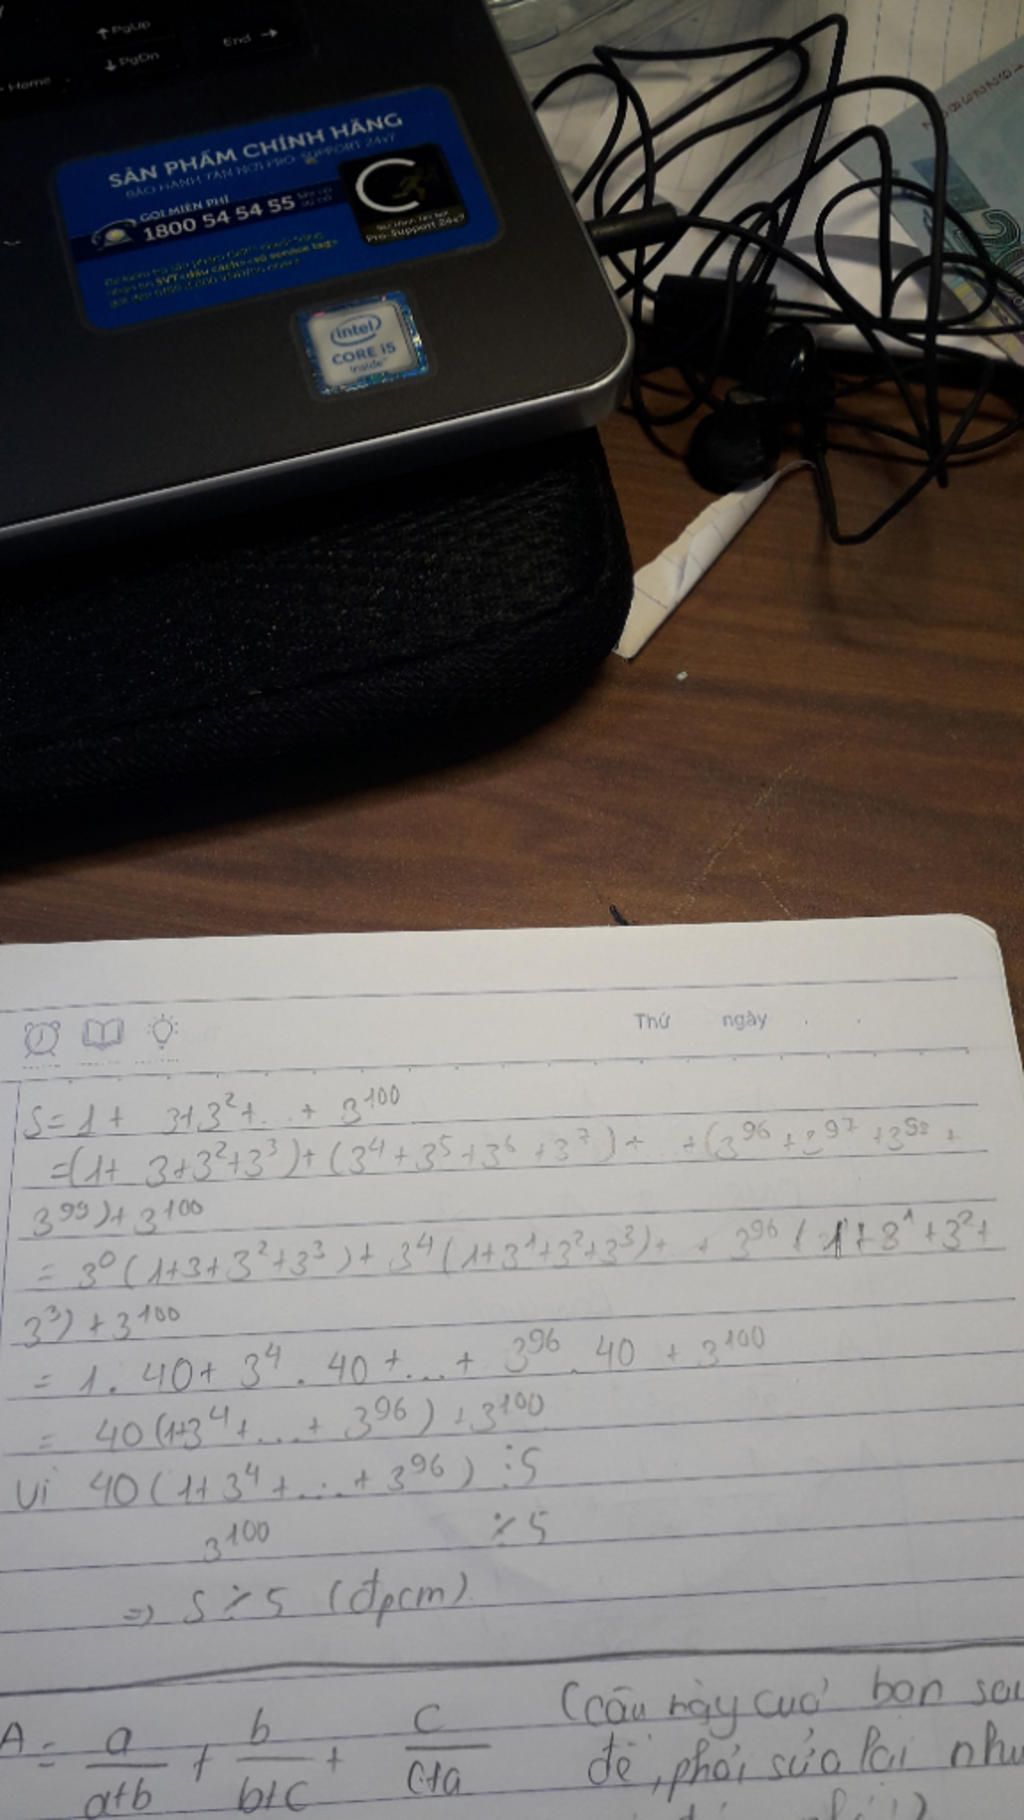 ↑ PgUp
End →
Home
↓ PgDn
SẢN PHẨM CHÍNH HÃNG
BẢO HÀNH TẬN NƠI PRO-SUPPORT 24x7
GỌI MIỄN PHÍ
1800 54 54 55
Pro-Support 24x7
intel
CORE i5
inside
Thứ ngày
S = 1 + 3 + 3² + ... + 3¹⁰⁰
= (1 + 3 + 3² + 3³) + (3⁴ + 3⁵ + 3⁶ + 3⁷) + ... + (3⁹⁶ + 3⁹⁷ + 3⁹⁸ +
3⁹⁹) + 3¹⁰⁰
= 3⁰ (1 + 3 + 3² + 3³) + 3⁴ (1 + 3¹ + 3² + 3³) + .. + 3⁹⁶ (1 + 3¹ + 3² +
3³) + 3¹⁰⁰
= 1 . 40 + 3⁴ . 40 + ... + 3⁹⁶ . 40 + 3¹⁰⁰
= 40 (1 + 3⁴ + ... + 3⁹⁶) + 3¹⁰⁰
Vì 40 (1 + 3⁴ + ... + 3⁹⁶) ⋮ 5
3¹⁰⁰ ⋮̸ 5
=> S ⋮̸ 5 (đpcm)
A = a/(a+b) + b/(b+c) + c/(c+a) (câu này của bạn sai
đề, phải sửa lại như